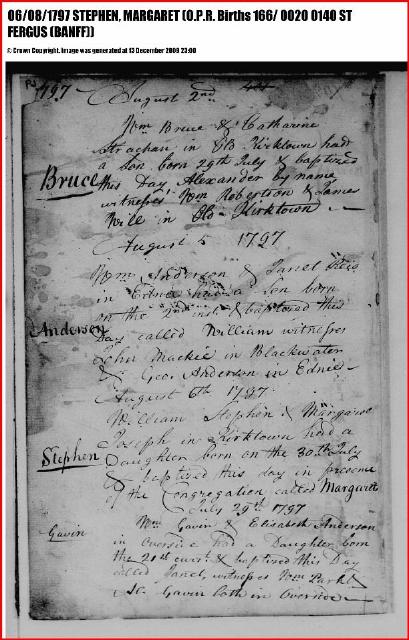 06/08/1797 STEPHEN, MARGARET (O.P.R. Births 166/ 0020 0140 ST
FERGUS (BANFF))
© Crown Copyright. Image was generated at 13 December 2009 23:00
1797
August 2nd
Wm Bruce & Catharine
Strachan in Old Kirktown had
a Son born 29th July & baptized
Bruce this Day, Alexander by name
witnesses Wm Robertson & James
Will in Old Kirktown
August 5 1797
Wm Anderson & Janet Reid
in Ednie had a Son born
on the 2nd inst & baptized this
Anderson Day called William witnesses
John Mackie in Blackwater
& Geo. Anderson in Ednie
August 6th 1797
William Stephen & Margaret
Joseph in Kirktown had a
Stephen Daughter born on the 30th July
& baptized this day in presence
of the Congregation called Margaret
July 29th 1797
Gavin Wm Gavin & Elisabeth Anderson
in Overside had a Daughter born
the 21st & baptized this Day
called Janet, witnesses Wm Park &
Gavin both in Overside